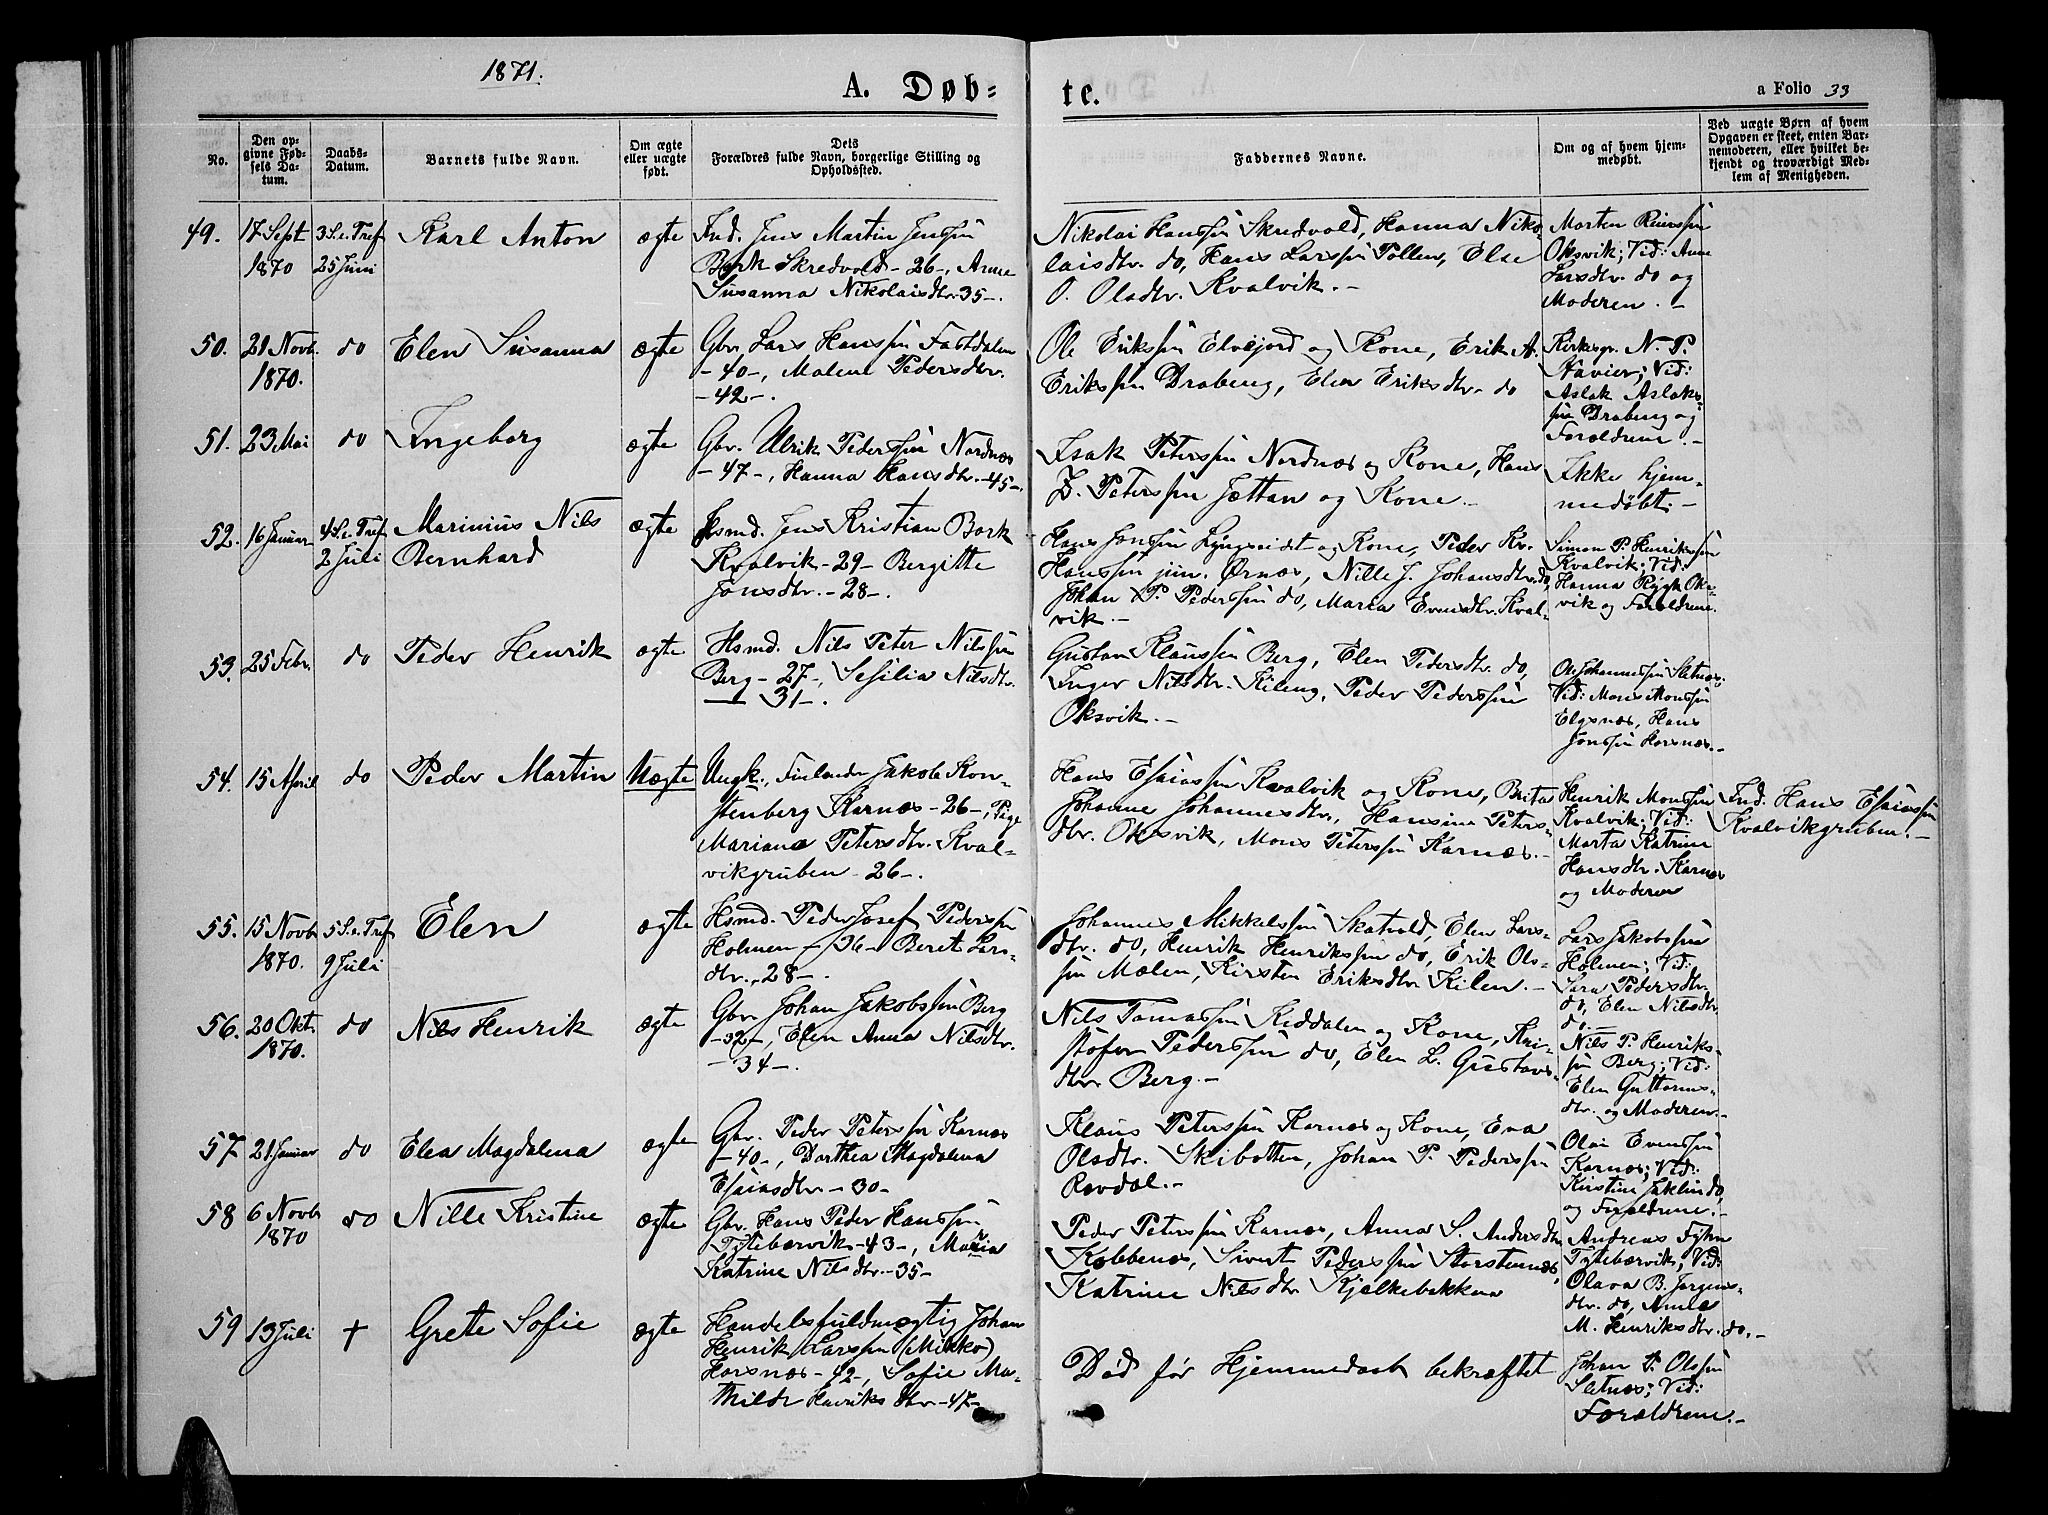 1871.
A. Døb-
te.
a Folio 33
No.
Den op-
givne Fød-
sels Da-
tum.
Daabs-
Datum.
Barnets fulde Navn.
Om ægte
eller uægte
født.
Dets
Forældres fulde Navn, borgerlige Stilling og
Opholdssted.
Faddernes Navne.
Om og af hvem hjem-
medøbt.
Ved uægte Børn af hvem
Opgaven er skeet, enten Bar-
nemoderen, eller hvilket be-
kjendt og troværdigt Med-
lem af Menigheden.
49.
17 Sept
1870
3 S. e. Tref
25 Juni
Karl Anton
ægte
Ind. Jens Martin Jenssøn
Bork Skredvold - 26 -, Anne
Susanna Nikolaisdtr. 35 -.
Nikolai Hanssøn Skredvold, Hanna Niko-
laisdtr. do, Hans Larssøn Pollen, Else
O. Olsdtr. Kvalvik. -
Morten
Oksvik; Vid: Anne
Larsdtr. do og
Moderen. -
50.
21 Novb.
1870.
do
Elen Susanna
ægte
Gbr. Lars Hanssøn Fastdalen
- 40 -, Malene Pedersdtr.
- 42 -.
Ole Erikssøn Elvejord og Kone, Erik A.
Erikssøn Drabeng, Elen Eriksdtr. do
Kirkesgr. N. P.
Xavier; Vid:
Aslak Aslaks-
søn Drabeng og
Forældrene. -
51.
23 Mai
do
Ingeborg
ægte
Gbr. Ulrik Pederssøn Nordnæs
- 47 -, Hanna Hansdtr. - 45 -.
Isak Peterssøn Nordnæs og Kone, Hans
Z. Peterssøn Jættan og Kone. -
Ikke hjem-
medøbt. -
52.
16 Januar
4 S. e. Tref
2 Juli
Marinius Nils
Bernhard
ægte
Hsmd. Jens Kristian Bork
Kvalvik - 29 - Bergitte
Jonsdtr. - 28 -.
Hans Jonssøn Lyngseidet og Kone, Peder Kr.
Hanssøn jun. Ørnæs, Nille J. Johansdtr. do,
Johan P. Pederssøn do, Maria Evensdtr. Kval-
vik. -
Simon P. Henrikssøn
Kvalvik; Vid:
Hanna Rygh Oks-
vik og Forældrene.
53.
25 Febr.
do
Peder Henrik
ægte
Hsmd. Nils Peter Nilssøn
Berg - 27 -, Sesilia Nilsdtr.
- 31 -.
Gustav Klaussøn Berg, Elen Pedersdtr. do,
Inger Nilsdtr. Kileng, Peder Pederssøn
Oksvik. -
Ole Johannessøn Sletnæs;
Vid: Mons Monssøn
Elgsnæs, Hans
Jonssøn Horsnæs. -
54.
15 April
do
Peder Martin
Uægte
Ungk., Finlænder Jakob Kon-
stenberg Karnæs - 26 -, Pige
Mariana Petersdtr. Kval-
vikgruben - 26 -.
Hans Esaiassøn Kvalvik og Kone, Brita
Johanne Johannesdtr., Hansine Peters-
dtr. Oksvik, Mons Peterssøn Karnæs. -
Henrik Monssøn
Kvalvik; Vid:
Marta Katrine
Hansdtr. Karnæs
og Moderen
Ind. Hans Esaiassøn
Kvalvikgruben. -
55.
15 Novb
1870.
5 S. e. Tref
9 Juli
Elen
ægte
Hsmd. Peder Josef Pederssøn
Holmen - 36 - Beret Lars-
dtr. - 28 -.
Johannes Mikkelssøn Skatvold, Elen Lars-
dtr. do, Henrik Henrikssøn do, Erik Ols-
søn Mælen, Kirsten Eriksdtr. Kilen. -
Lars Jakobssøn
Holmen; Vid:
Sara Pedersdtr.
do, Elen Nilsdtr.
do. -
56.
20 Okt.
1870.
do
Nils Henrik
ægte
Gbr. Johan Jakobssøn Berg
- 32 -, Elen Anna Nilsdtr.
- 34 -.
Nils Tomassøn Kiddalen og Kone, Kri-
stofer Pederssøn do, Elen L. Gustavs-
dtr. Berg. -
Nils P. Henriks-
søn Berg; Vid:
Elen Guttorms-
dtr. og Moderen. -
57
21 Januar
do
Elen Magdalena
ægte
Gbr. Peder Peterssøn Karnæs
- 40 -, Dorthea Magdalena
Esaiasdtr. - 30 -
Klaus Peterssøn Karnæs og Kone, Eva
Olsdtr. Skibotten, Johan P. Pederssøn
Rovdal. -
Olai Evenssøn
Karnæs; Vid:
Kirstine Jaklin do,
og Forældrene. -
58
6 Novb
1870
do
Nille Kristine
ægte
Gbr. Hans Peder Hanssøn
Tytebærvik - 43 -, Maria
Katrine Nilsdtr. - 35 -
Peder Peterssøn Karnæs, Anna S. Andersdtr.
Kobbenæs, Sivert Pederssøn Storstennæs,
Katrine Nilsdtr. Kjelkebakken
Andreas Fyhn
Tytebærvik; Vid:
Olava B. Jørgens-
dtr. do, Anne
M. Henriksdtr. do. -
59
13 Juli
+
Grete Sofie
ægte
Handelsfuldmægtig Johan
Henrik Larssøn (Mikko)
Horsnæs - 42 -, Sofie Ma-
thilde Henriksdtr. - 47 -
Død før Hjemmedaab bekræftet
Johan P. Olssøn
Sletnæs; Vid:
Forældrene. -